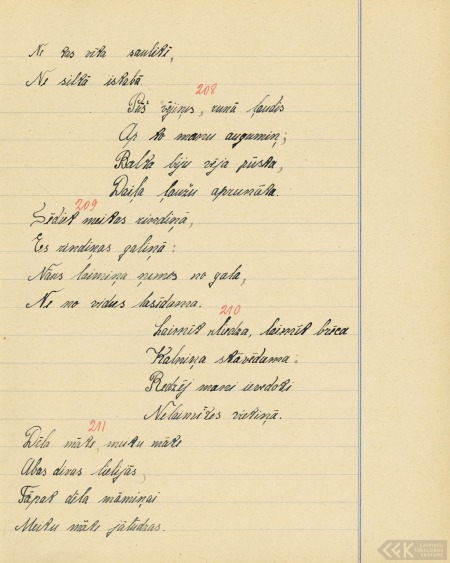 Ne kas vīta saulītē,
Ne siltā istabā.
208
Pūš vējiņš, runā ļaudis
Ap to manu augumiņ;
Balta biju vēja pūsta,
Daiļa ļaužu aprunāta.
209
Sēdiet meitas rindiņā,
Es rindiņas galiņā:
Nāks laimiņa ņemes no gala,
Ne no vidus lasīdama.
210
Laimiņ kliedza, laimiņ brēca
Kalniņa stāvēdama:
Redzēj mani ievedoti
Nelaimītes vietiņā.
211
Dēla māte, meitu māte
Abas divas lielījās,
Tāpat dēla māmiņai
Meitu māte jālūdzas.